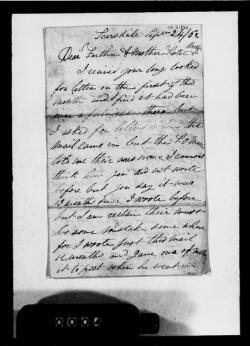 Scarsdale Sepr 24/62
Dear Farther & Mother Sister &
I recived your long looked
for letter on the first of this
month and find it had been
over a there but
I asked for letters when the
mail came in but the P.O Man
told me their was none I cannot
think how you did not wrote
before but you say it was
12 months since I wrote before
but I am certain their must
be some mistake some where
for I wrote just this mail
12 months and gave one of
it to post when he went in
0004